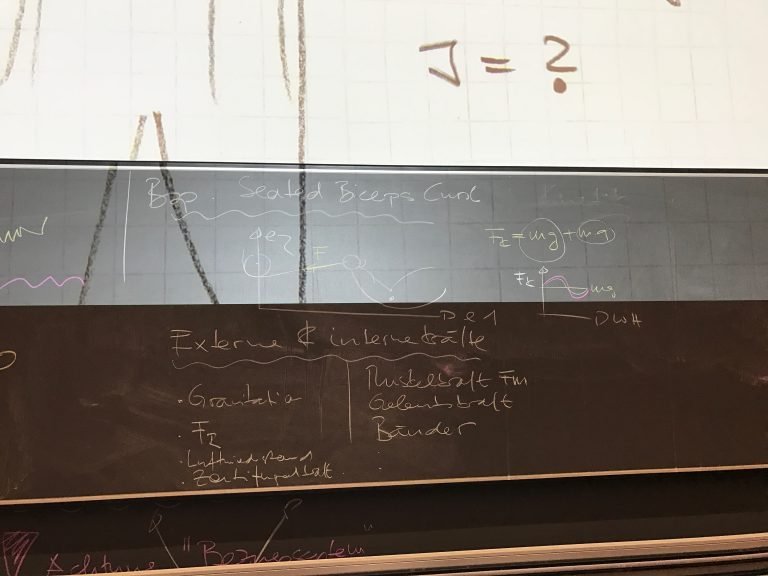 J = ?
Bsp. Seated Biceps Curl
F
F = mg + mg
mg
DWH
Externe & interne Kräfte
· Gravitation
· F
· Luftwiderstand
· Zentrifugalkraft
Muskelkraft Fm
Gelenkskraft
Bänder
Achtung "Bezugssystem"